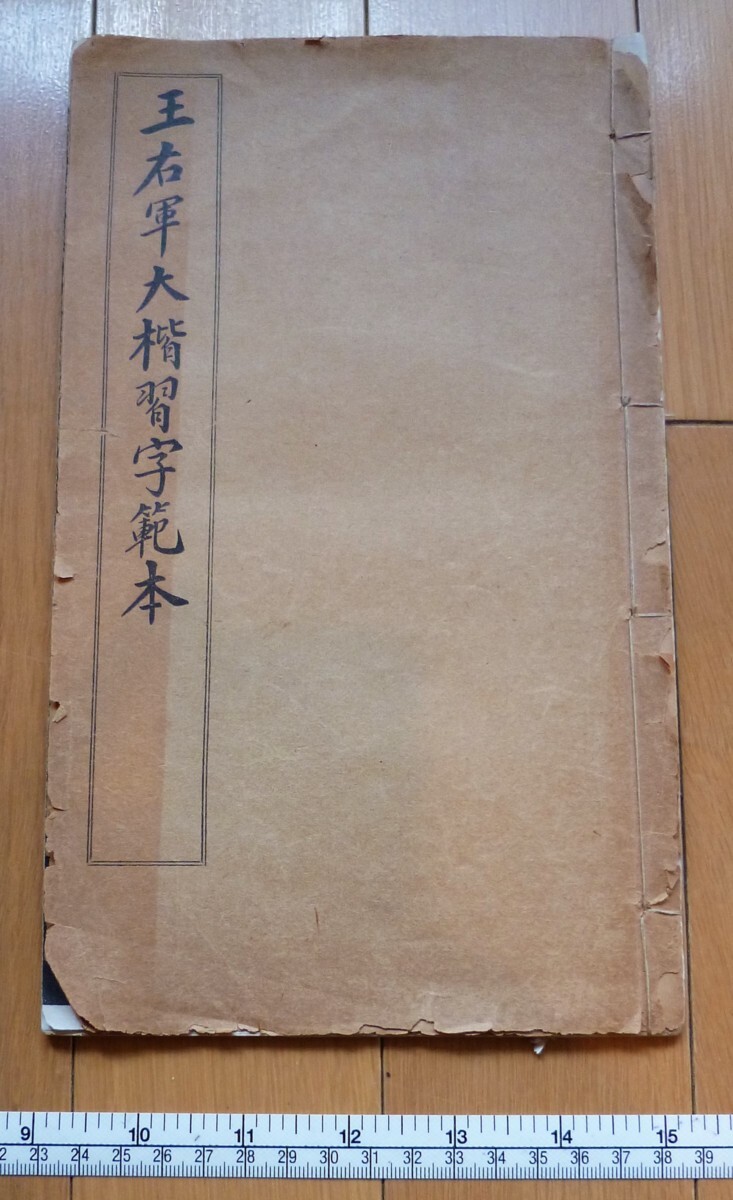 王右軍大楷習字範本
9 10 11 12 13 14 15
2 23 24 25 26 27 28 29 30 31 32 33 34 35 36 37 38 39